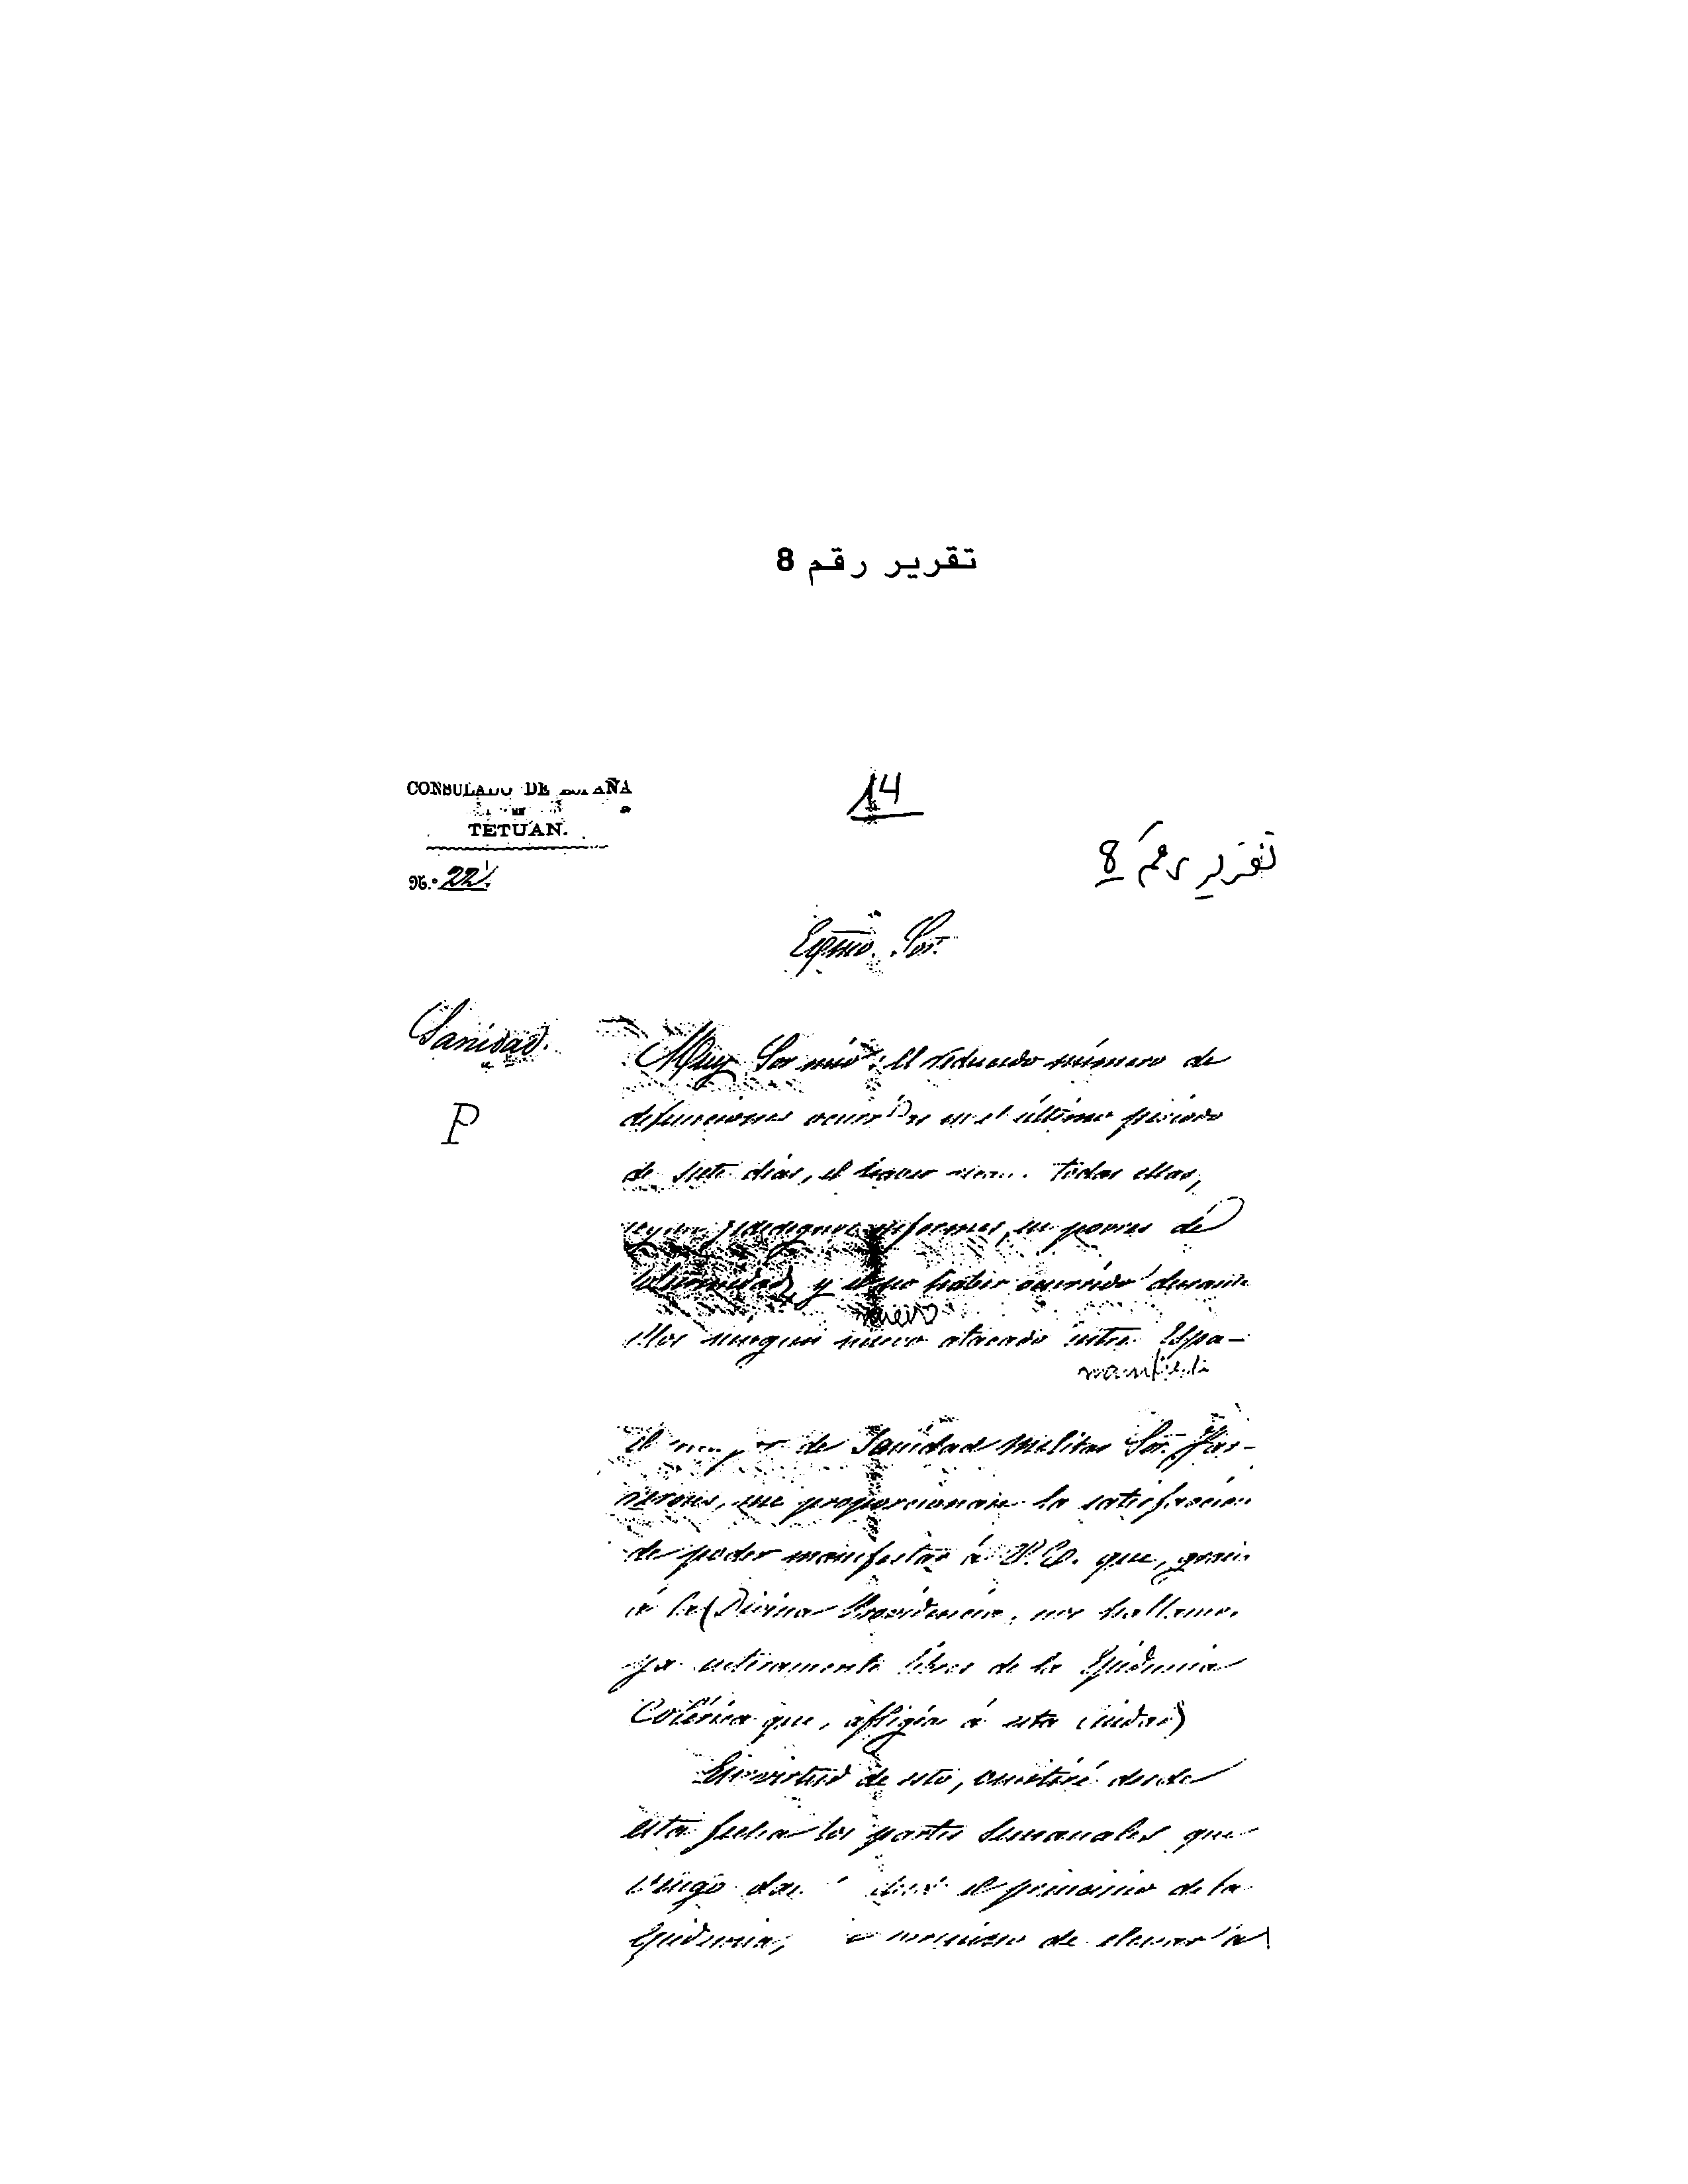 تقرير رقم 8
CONSULADO DE ESPAÑA
EN
TETUAN.
14
تقرير رقم 8
N.º 22
Exmo. Sor.
Sanidad.
P
Muy Sor mio: El reducido número de
defunciones ocurridas en el último periodo
de siete dias, el todas ellas,
según fidedignos informes, in pobres de
y el no haber ocurrido durante
nuevo
ellos ningun nuevo atacado entre Espa-
manifiesta
El de Sanidad Militar Sor.
me proporcionan la satisfacion
de poder manifestar á V.E. que, gracias
á la (Divina Providencia, nos hallamos
ya enteramente libres de la Epidemia
Colérica que, afligía á esta ciudad)
En virtud de esto, omitiré desde
esta fecha los partes semanales que
vengo el principio de la
Epidemia, de elevar á